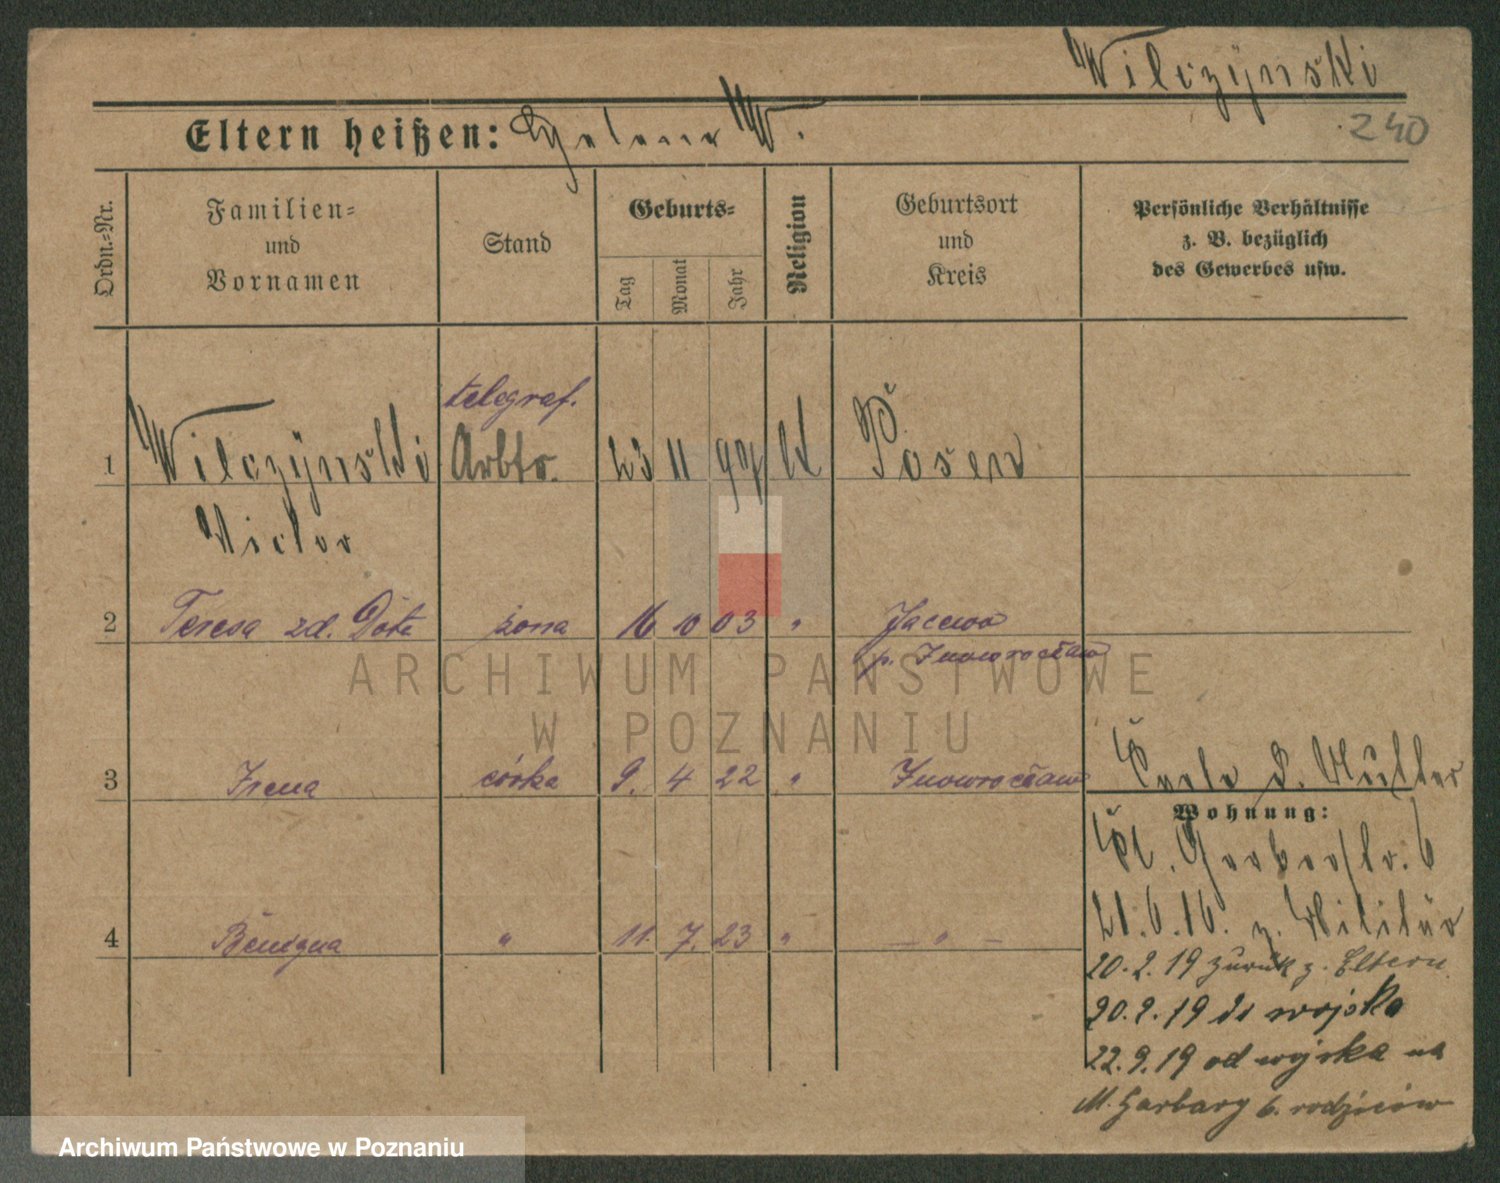 Wilczÿnski
240
Eltern heißen: Helena W.
Ordn.-Nr.
Familien-
und
Vornamen
Stand
Geburts-
Tag
Monat
Jahr
Religion
Geburtsort
und
Kreis
Persönliche Verhältnisse
z. B. bezüglich
des Gewerbes usw.
telegraf.
1 Wilczÿnski Arbtr. 23 11 97 kt Posen
Victor
2 Teresa zd. Dota żona 16 10 03 " Jacewo
p. Inowrocław
3 Irena córka 9. 4 22 " Inowrocław
b. d. Mutter
Wohnung:
Kl. Gerberstr. 6
4 Benigna " 11. 7. 23 " — " —
21.6.16. z. Militär
20.2.19 zurük z. Eltern
20.2.19 do wojska
22.9.19 od wojska na
M. Garbary 6. rodziców
ARCHIWUM PAŃSTWOWE
W POZNANIU
Archiwum Państwowe w Poznaniu